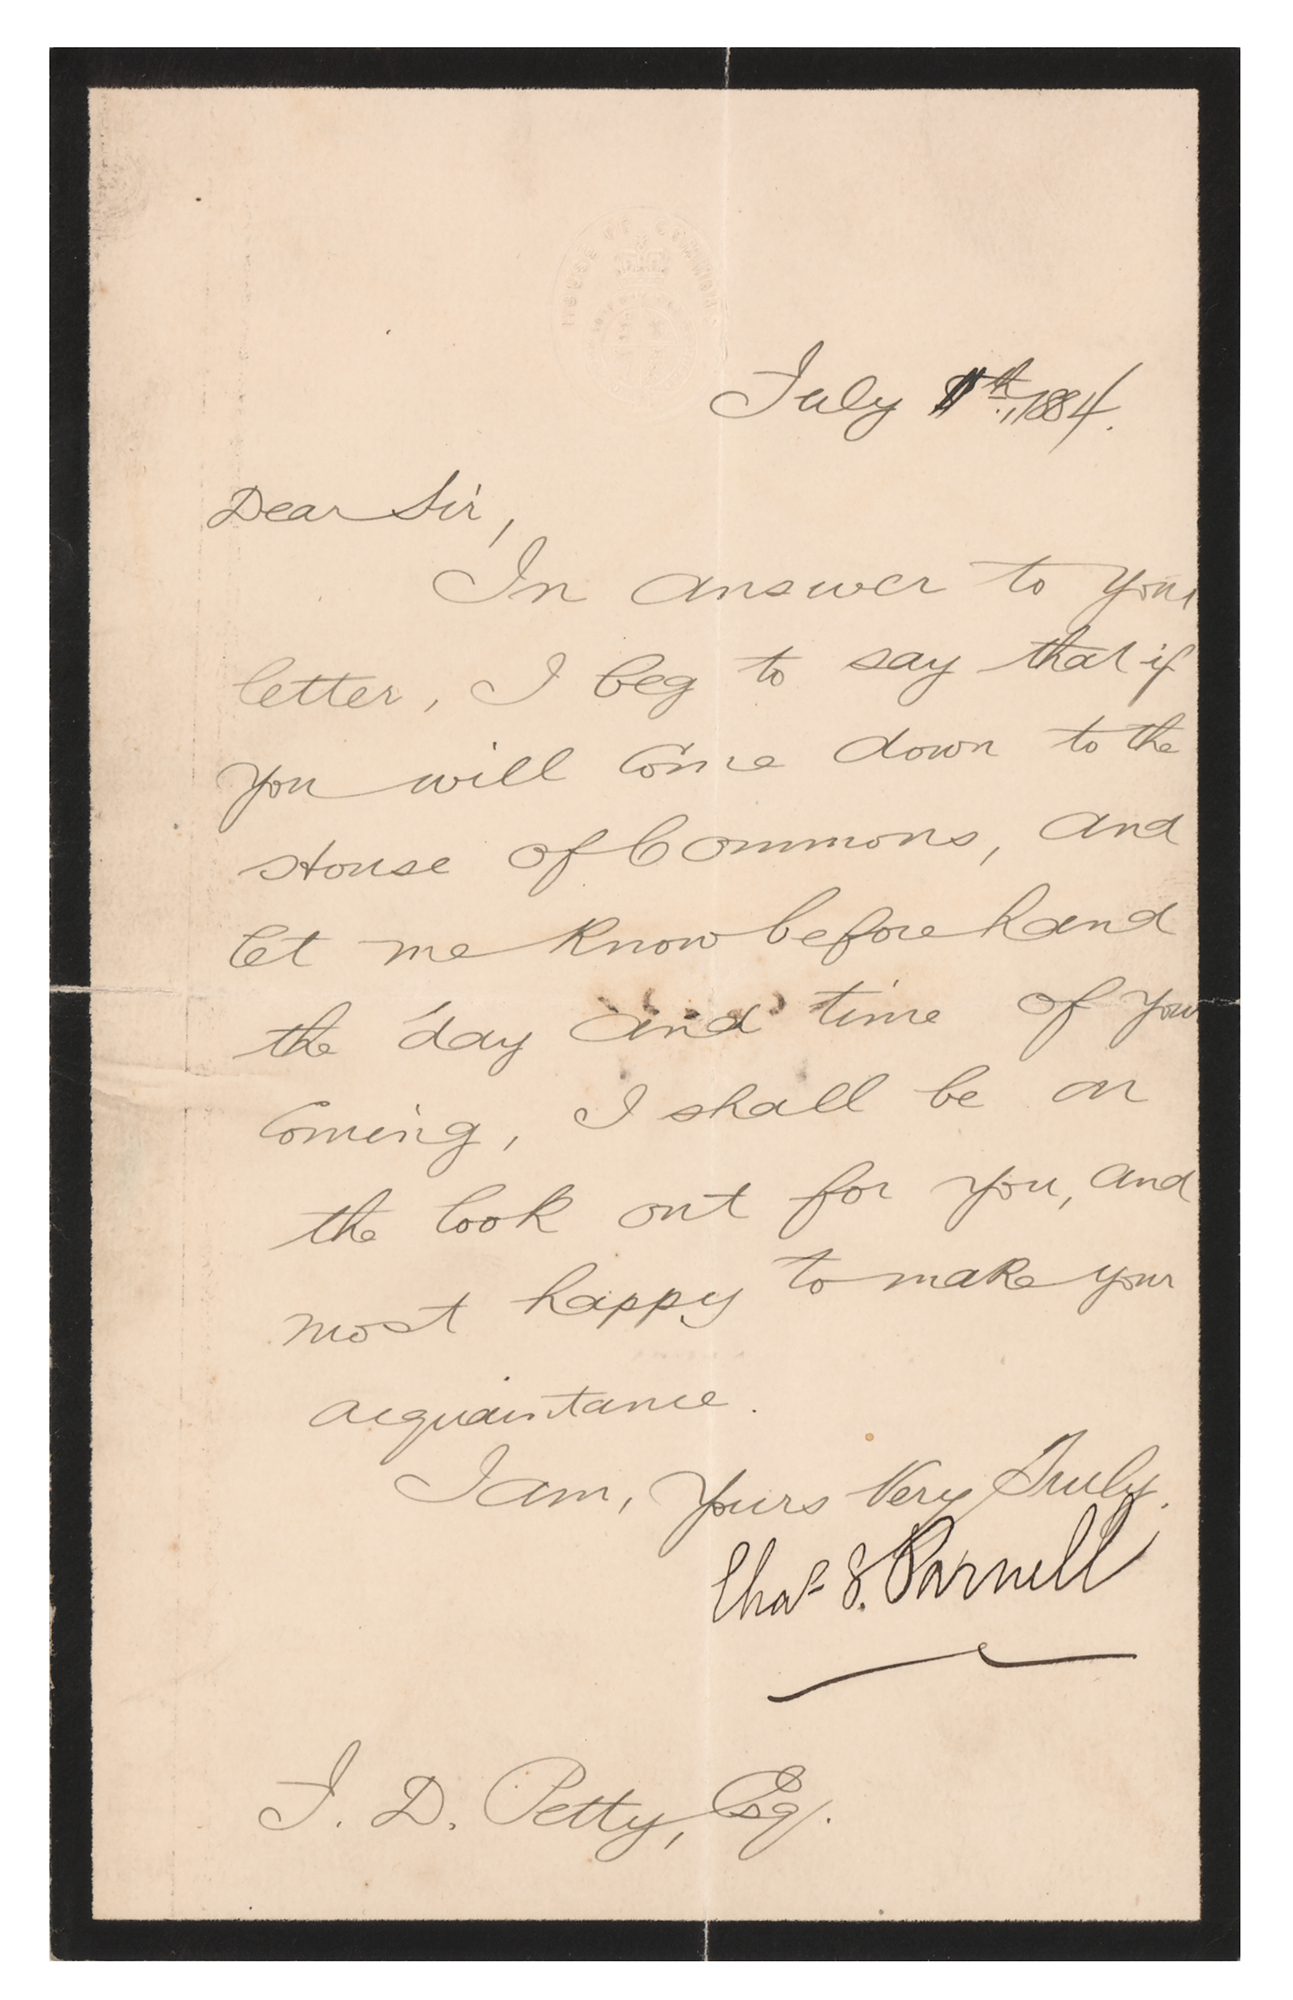 HOUSE OF COMMONS
July th, 1884.
Dear Sir,
In answer to your
letter, I beg to say that if
you will come down to the
House of Commons, and
let me know beforehand
the day and time of your
coming, I shall be on
the look out for you, and
most happy to make your
acquaintance.
I am, Yours Very Truly.
Chas S. Parnell
J. D. Petty, Esq.